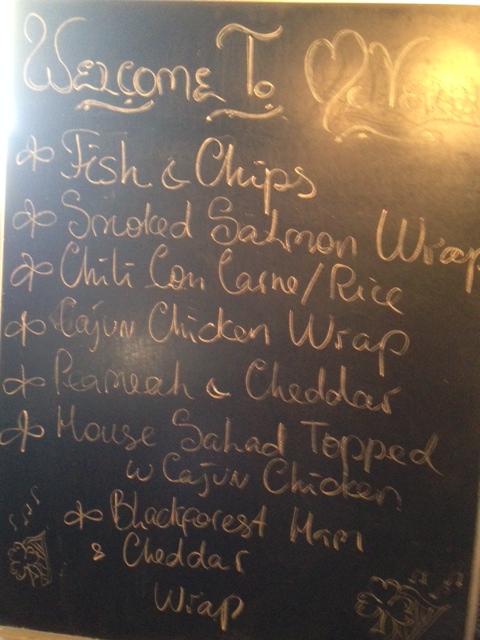 Welcome To
* Fish & Chips
* Smoked Salmon Wrap
* Chili Con Carne/Rice
* Cajun Chicken Wrap
* Peameal & Cheddar
* House Salad Topped
w Cajun Chicken
* Blackforest Ham
& Cheddar
Wrap